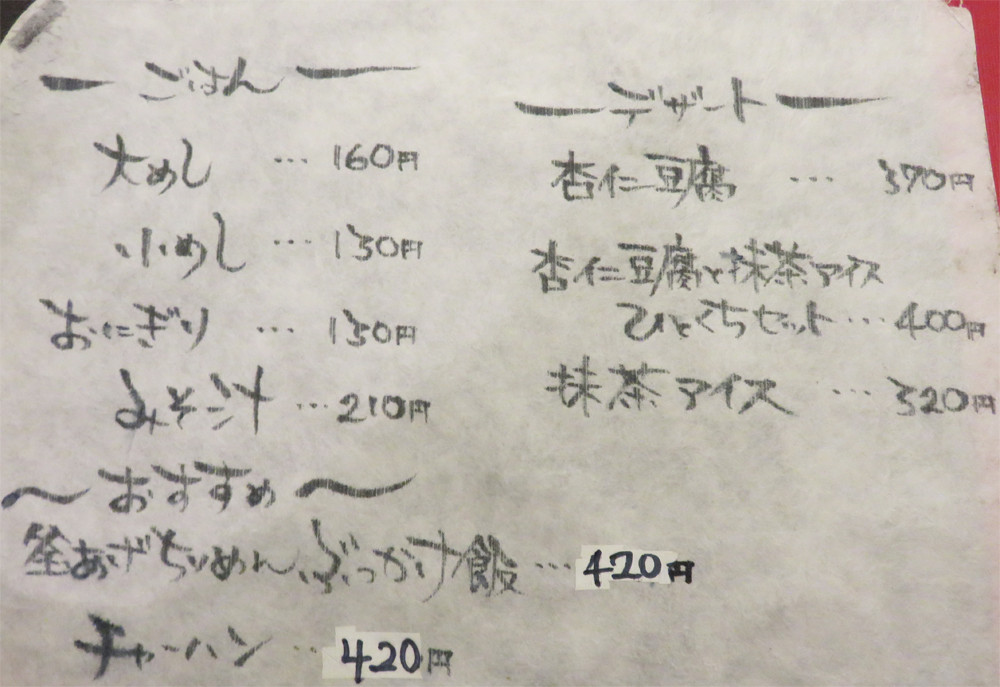 ごはん
大めし … 160円
小めし … 130円
おにぎり … 130円
みそ汁 … 210円
〜おすすめ〜
釜あげちりめんぶっかけ飯 … 420円
チャーハン … 420円
デザート
杏仁豆腐 … 370円
杏仁豆腐と抹茶アイス
ひとくちセット … 400円
抹茶アイス … 320円